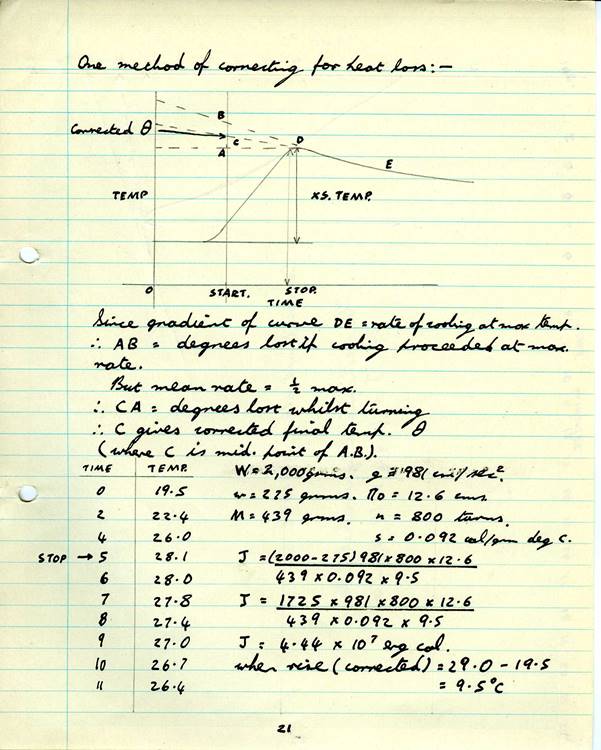 One method of correcting for heat loss:-
B
Corrected θ
D
C
A
E
TEMP
XS. TEMP.
0
START.
STOP.
TIME
Since gradient of curve DE = rate of cooling at max temp.
∴ AB = degrees lost if cooling proceeded at max.
rate.
But mean rate = ½ max.
∴ CA = degrees lost whilst turning
∴ C gives corrected final temp. θ
(where C is mid. point of A.B.).
TIME TEMP. W = 2,000 grms. g = 981 cm/sec².
0 19.5 w = 275 grms. πD = 12.6 cms.
2 22.4 M = 439 grms. n = 800 turns.
4 26.0 s = 0.092 cal/gm deg C.
STOP → 5 28.1 J = (2000-275) 981 x 800 x 12.6
6 28.0 439 x 0.092 x 9.5
7 27.8 J = 1725 x 981 x 800 x 12.6
8 27.4 439 x 0.092 x 9.5
9 27.0 J = 4.44 x 10⁷ erg cal.
10 26.7 when rise (corrected) = 29.0 - 19.5
11 26.4 = 9.5°C
21